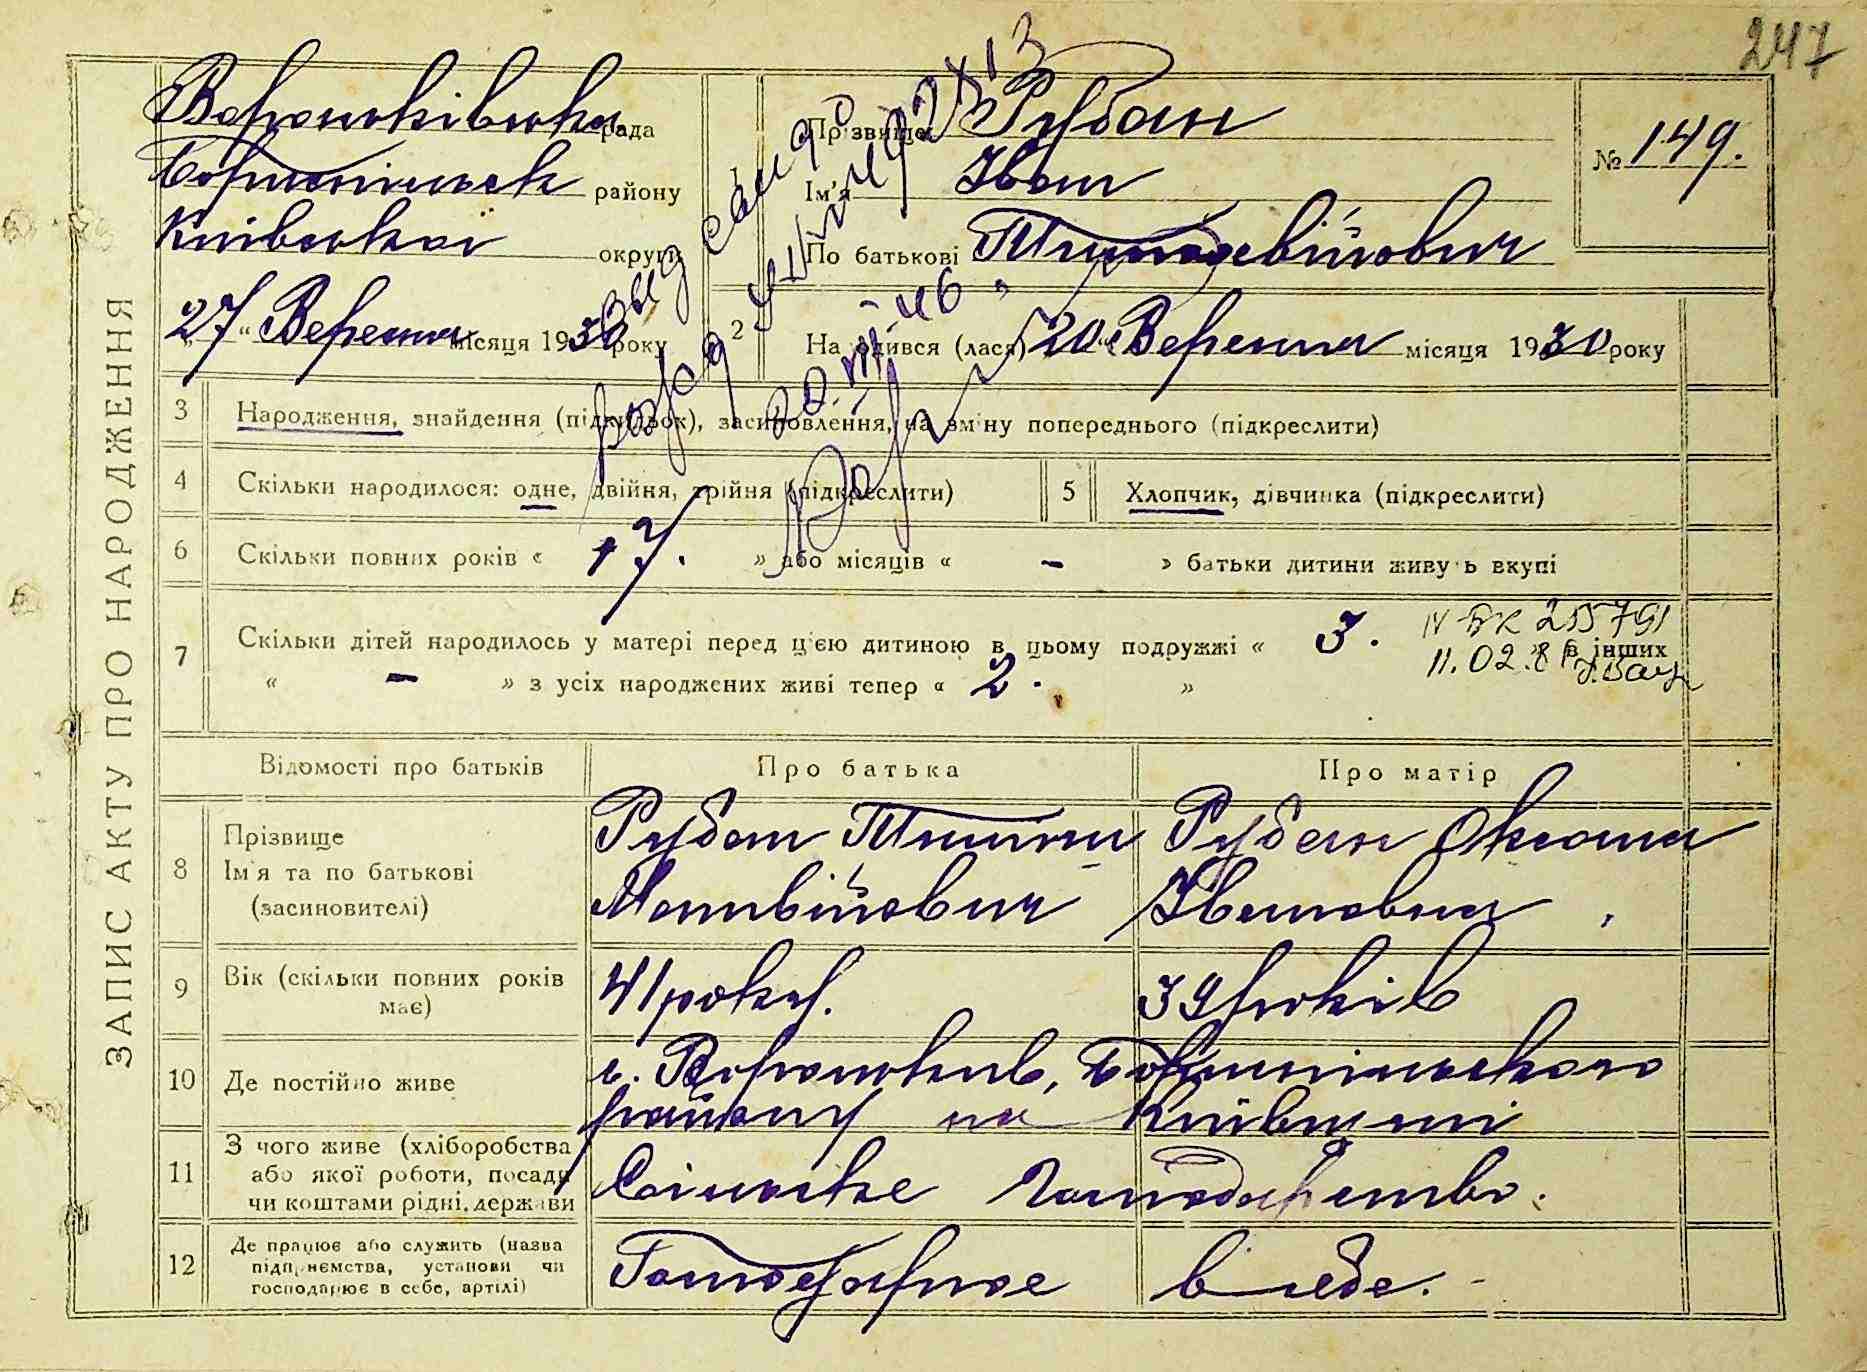 247
Вороньківська рада
Бориспільськ району
Київської округи
"27" Вересня місяця 1930 року
1
Прізвище Рубан
Ім'я Іван
По батькові
№ 149.
2
Народився (лася) "20" Вересня місяця 1930 року
ЗАПИС АКТУ ПРО НАРОДЖЕННЯ
3 Народження, знайдення (підкидьок), засиновлення, на зміну попереднього (підкреслити)
4 Скільки народилося: одне, двійня, трійня (підкреслити)
5 Хлопчик, дівчинка (підкреслити)
6 Скільки повних років « 17. » або місяців « - » батьки дитини живуть вкупі
7 Скільки дітей народилось у матері перед цією дитиною в цьому подружжі « 3. » в інших
« - » з усіх народжених живі тепер « 2. »
255791
11.02.81
Відомості про батьків Про батька Про матір
8 Прізвище
Ім'я та по батькові
(засиновителі)
Рубан
Матвійович
Рубан Оксана
Івановна
9 Вік (скільки повних років
має)
41 рокы.
39 років
10 Де постійно живе
с. Вороньків, Бориспільського
району на Київщині
11 З чого живе (хліборобства
або якої роботи, посади
чи коштами рідні, держави
Сільське Господарство.
12 Де працює або служить (назва
підприємства, установи чи
господарює в себе, артілі)
Господарює в себе.
20.III.46